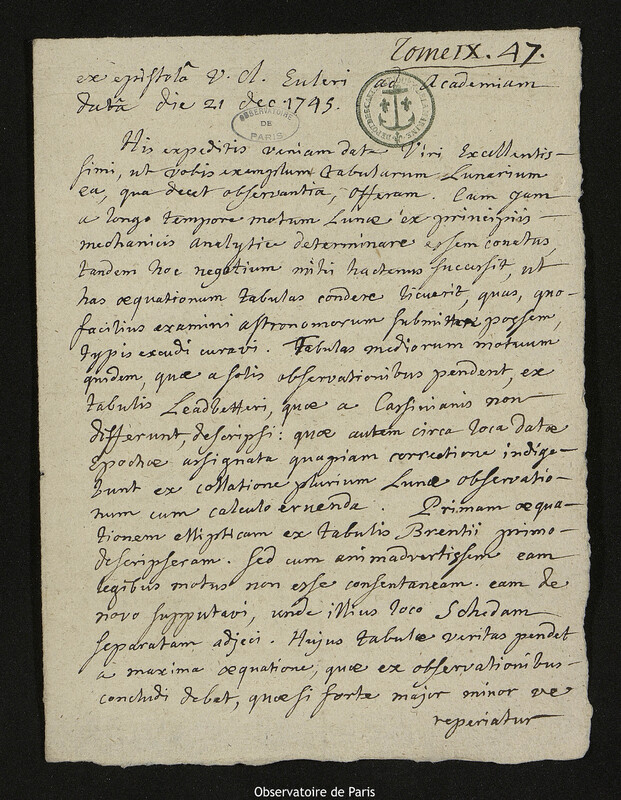 Tome IX. 47.
ex epistolâ V. Cl. Euleri ad Academiam
datâ die 21 dec 1745.
OBSERVATOIRE
DE
PARIS
His expeditis veniam date Viri Excellentis-
simi, ut vobis exemplum tabularum Lunarium
ea, qua decet observantia, offeram. Cum jam
a longo tempore motum Lunæ ex principiis
mechanicis analytice determinare essem conatus,
tandem hoc negotium mihi hactenus successit, ut
has æquationum tabulas condere licuerit, quas, quo-
facilius examini astronomorum submittere possem,
typis excudi curavi. Tabulas mediorum motuum
quidem, quæ a solis observationibus pendent, ex
tabulis Leadbetteri, quæ a Cassinianis non
differunt, descripsi: quæ autem circa loca datæ
Epochæ assignata quapiam correctione indige-
bunt ex collatione plurium Lunæ observatio-
num cum calculo eruenda. Primam æqua-
tionem ellipticam ex tabulis Brentii primo-
descripseram. Sed cum animadvertissem eam
legibus motus non esse consentaneam. eam de
novo supputavi, unde illius loco Schedam
separatam adjeci. Hujus tabulæ veritas pendet
a maxima æquatione, quæ ex observationibus-
concludi debet, quæ si forte major minor ve
reperiatur
Observatoire de Paris